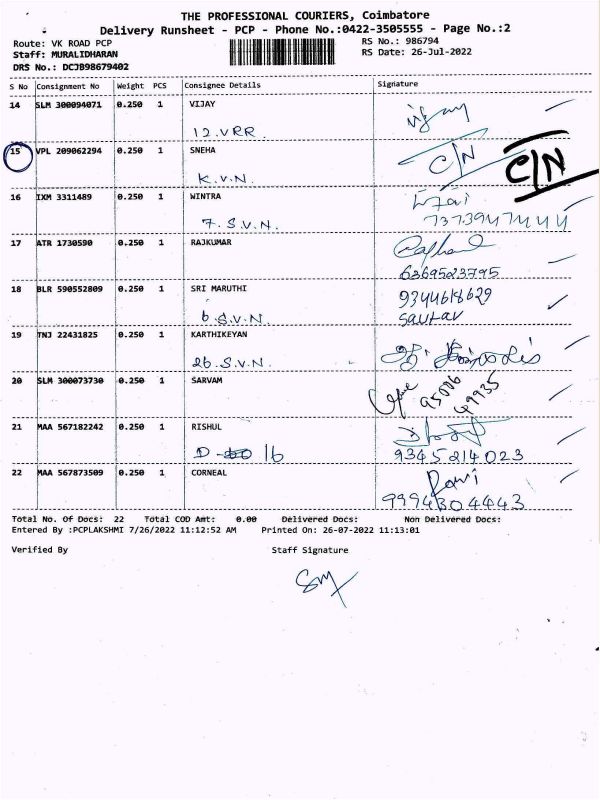 THE PROFESSIONAL COURIERS, Coimbatore
Delivery Runsheet - PCP - Phone No.:0422-3505555 - Page No.:2
Route: VK ROAD PCP RS No.: 986794
Staff: MURALIDHARAN RS Date: 26-Jul-2022
DRS No.: DCJB98679402
S No Consignment No Weight PCS Consignee Details Signature
14 SLM 300094071 0.250 1 VIJAY
12.VRR.
15 VPL 209062294 0.250 1 SNEHA C/N C/N
K.V.N.
16 IXM 3311489 0.250 1 WINTRA
7.S.V.N.
17 ATR 1730590 0.250 1 RAJKUMAR
6369523795
18 BLR 590552809 0.250 1 SRI MARUTHI 9344618629
6.S.V.N.
19 TNJ 22431825 0.250 1 KARTHIKEYAN
26.S.V.N.
20 SLM 300073730 0.250 1 SARVAM 95006
49935
21 MAA 567182242 0.250 1 RISHUL
16 9345214023
22 MAA 567873509 0.250 1 CORNEAL Ravi
9994304443
Total No. Of Docs: 22 Total COD Amt: 0.00 Delivered Docs: Non Delivered Docs:
Entered By :PCPLAKSHMI 7/26/2022 11:12:52 AM Printed On: 26-07-2022 11:13:01
Verified By Staff Signature